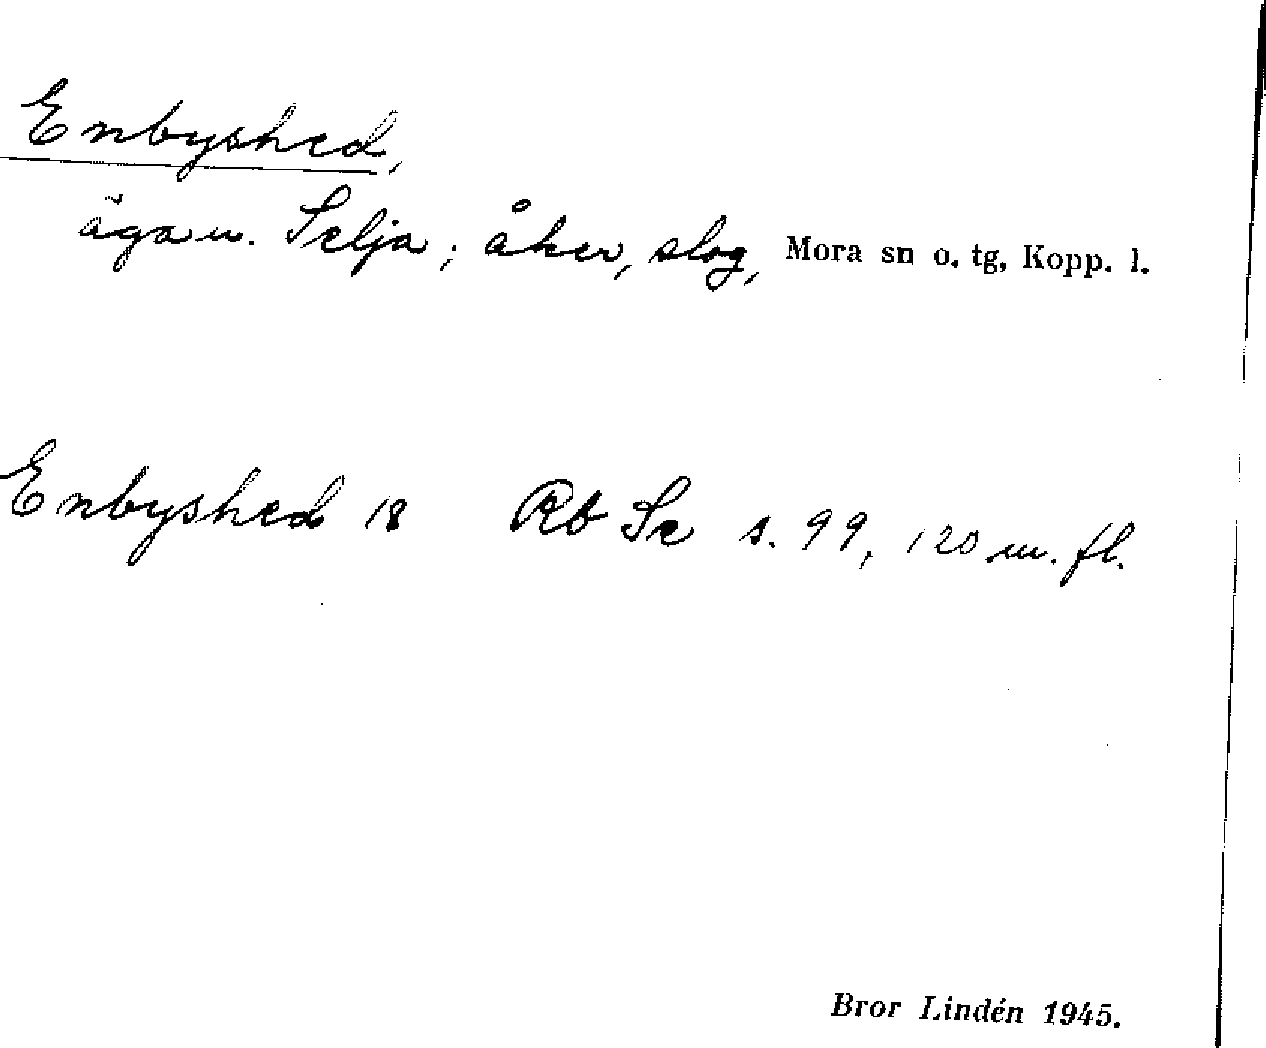 Enbyshed,
äga u. Selja; åker, slog, Mora sn o. tg, Kopp. l.
Enbyshed 18 Rb Se s. 99, 120 m. fl.
Bror Lindén 1945.